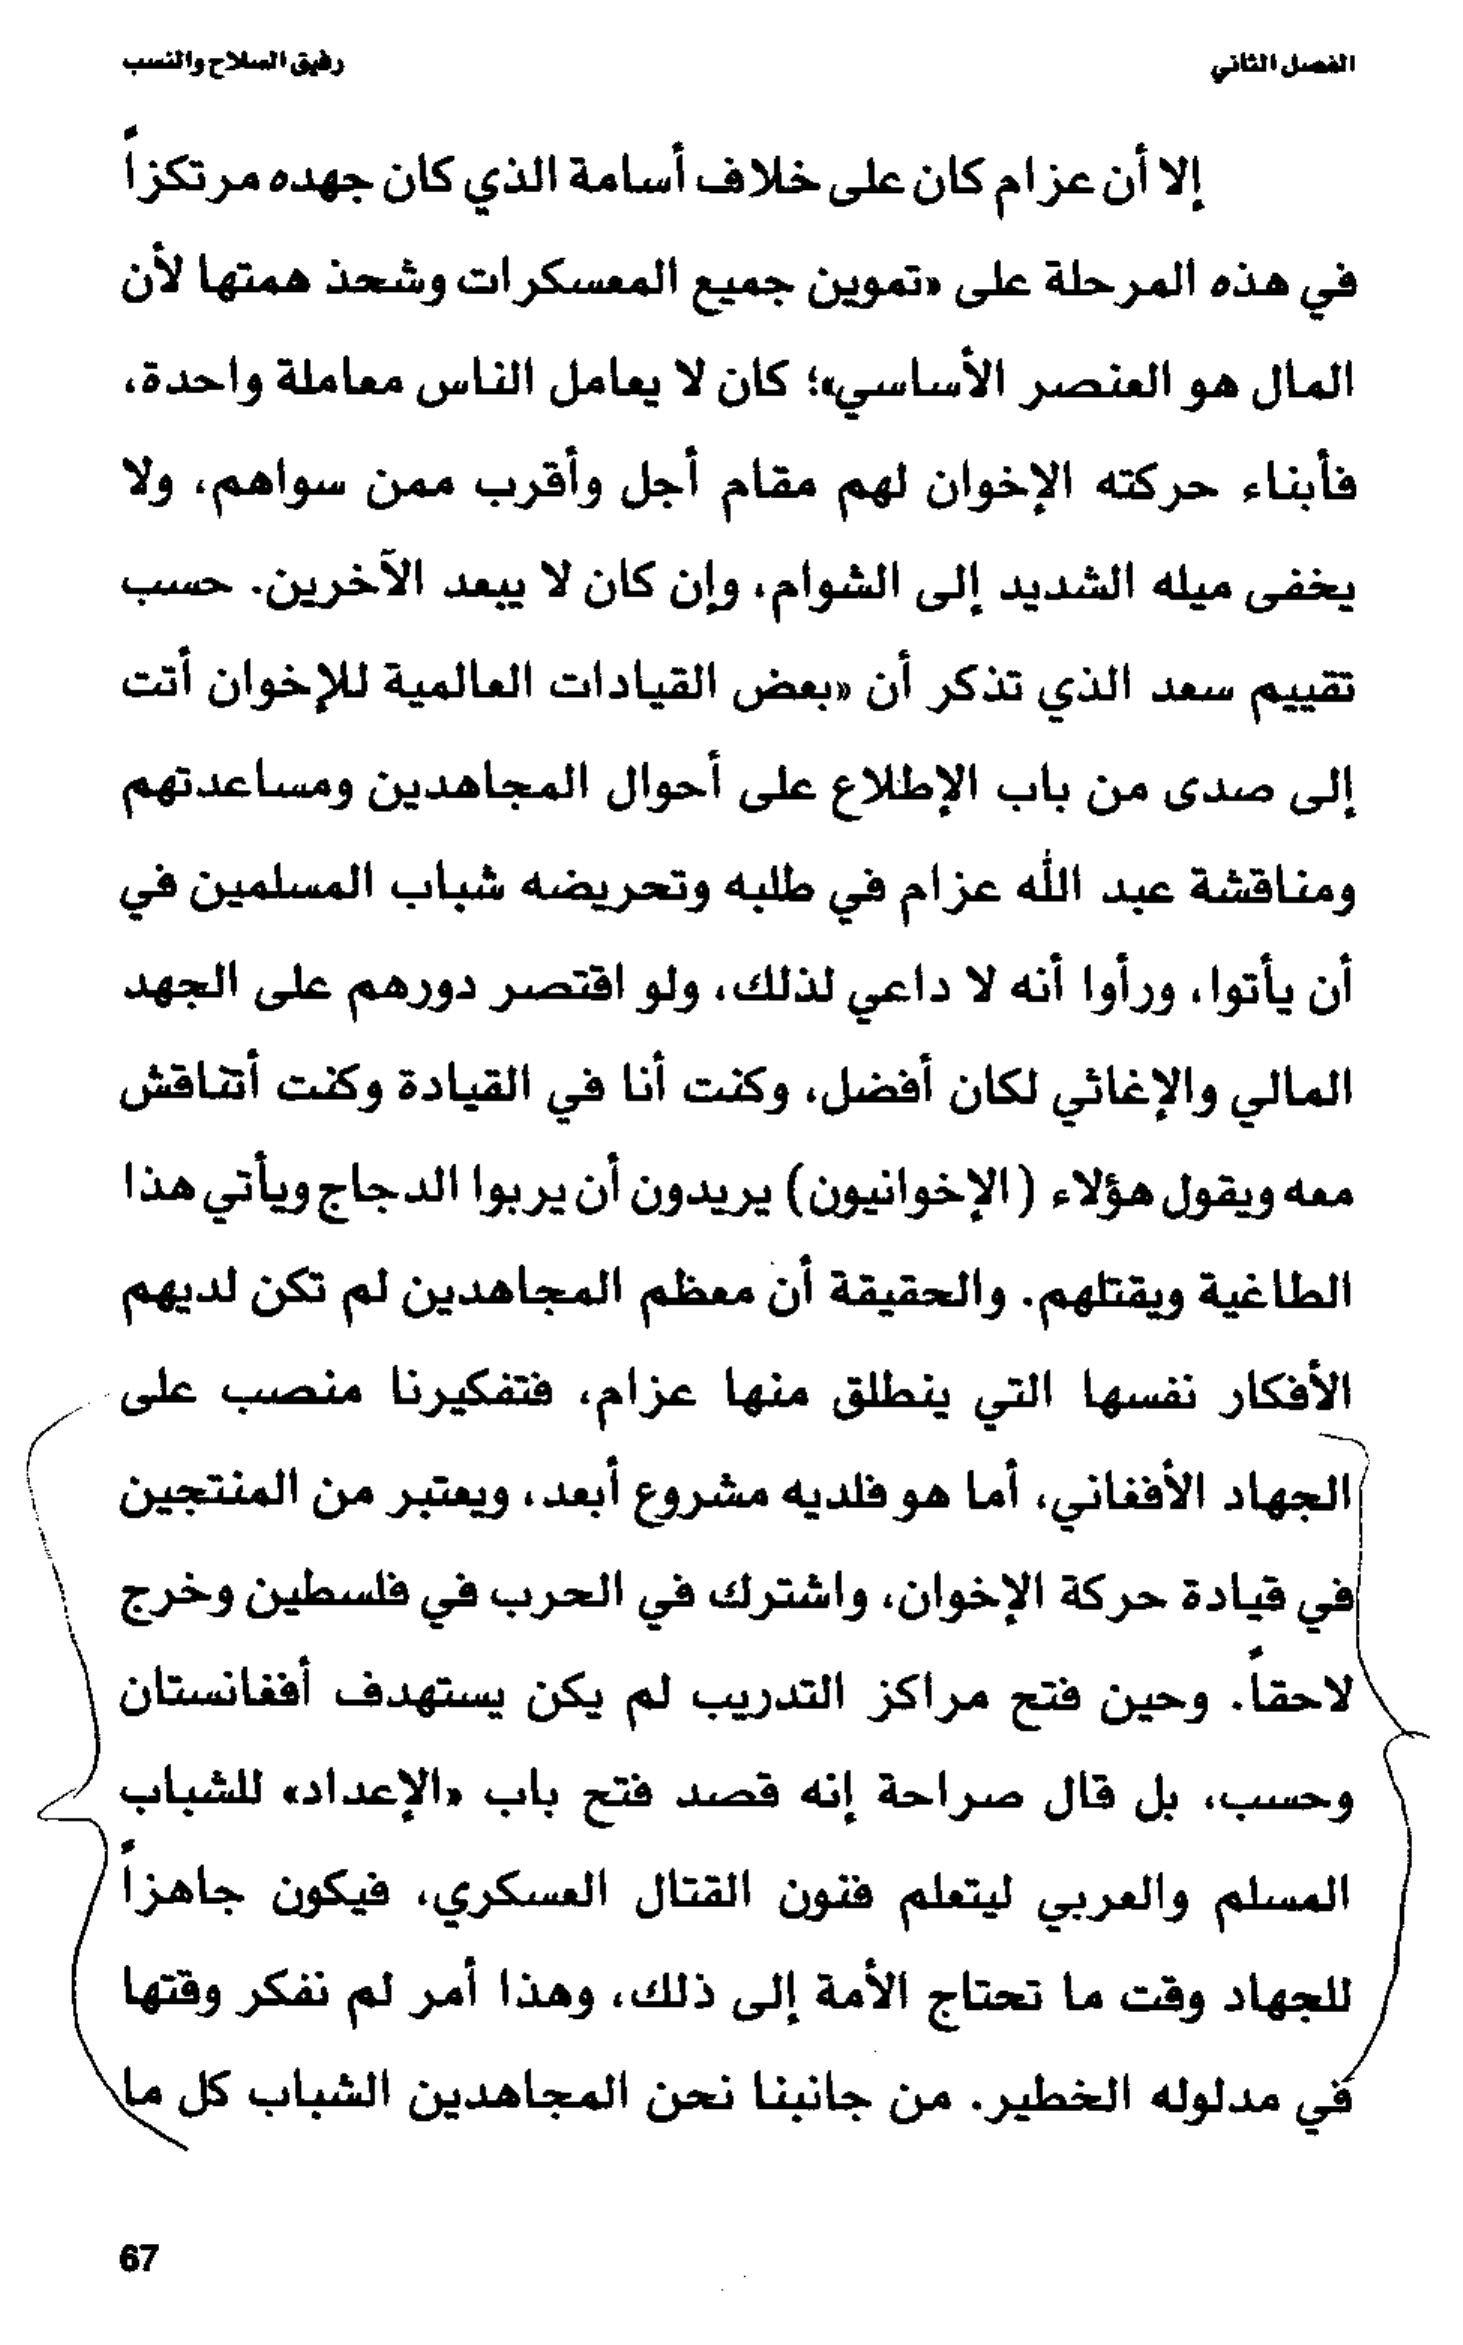 الفصل الثاني
رفيق السلاح والنسب
إلا أن عزام كان على خلاف أسامة الذي كان جهده مرتكزاً
في هذه المرحلة على «تموين جميع المعسكرات وشحذ همتها لأن
المال هو العنصر الأساسي»؛ كان لا يعامل الناس معاملة واحدة،
فأبناء حركته الإخوان لهم مقام أجل وأقرب ممن سواهم، ولا
يخفى ميله الشديد إلى الشوام، وإن كان لا يبعد الآخرين. حسب
تقييم سعد الذي تذكر أن «بعض القيادات العالمية للإخوان أتت
إلى صدى من باب الإطلاع على أحوال المجاهدين ومساعدتهم
ومناقشة عبد الله عزام في طلبه وتحريضه شباب المسلمين في
أن يأتوا، ورأوا أنه لا داعي لذلك، ولو اقتصر دورهم على الجهد
المالي والإغاثي لكان أفضل، وكنت أنا في القيادة وكنت أتناقش
معه ويقول هؤلاء (الإخوانيون) يريدون أن يربوا الدجاج ويأتي هذا
الطاغية ويقتلهم. والحقيقة أن معظم المجاهدين لم تكن لديهم
الأفكار نفسها التي ينطلق منها عزام، فتفكيرنا منصب على
الجهاد الأفغاني، أما هو فلديه مشروع أبعد، ويعتبر من المنتجين
في قيادة حركة الإخوان، واشترك في الحرب في فلسطين وخرج
لاحقاً. وحين فتح مراكز التدريب لم يكن يستهدف أفغانستان
وحسب، بل قال صراحة إنه قصد فتح باب «الإعداد» للشباب
المسلم والعربي ليتعلم فنون القتال العسكري، فيكون جاهزاً
للجهاد وقت ما تحتاج الأمة إلى ذلك، وهذا أمر لم نفكر وقتها
في مدلوله الخطير. من جانبنا نحن المجاهدين الشباب كل ما
67